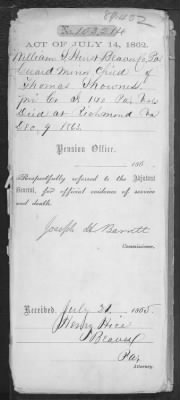 No. 103,214
ACT OF JULY 14, 1862.
William S. Beaver Pa
Guard Minor Child of
Thomas
Pri Co 140 Pa Vols
Died at Richmond Va
Dec. 9 1863.
Pension Office,
186 .
Respectfully referred to the Adjutant
General, for official evidence of service
and death.
Joseph H Barrett
Commissioner.
Received, July 31, 1865
Henry Hice
Beaver
Pa,
Attorney.